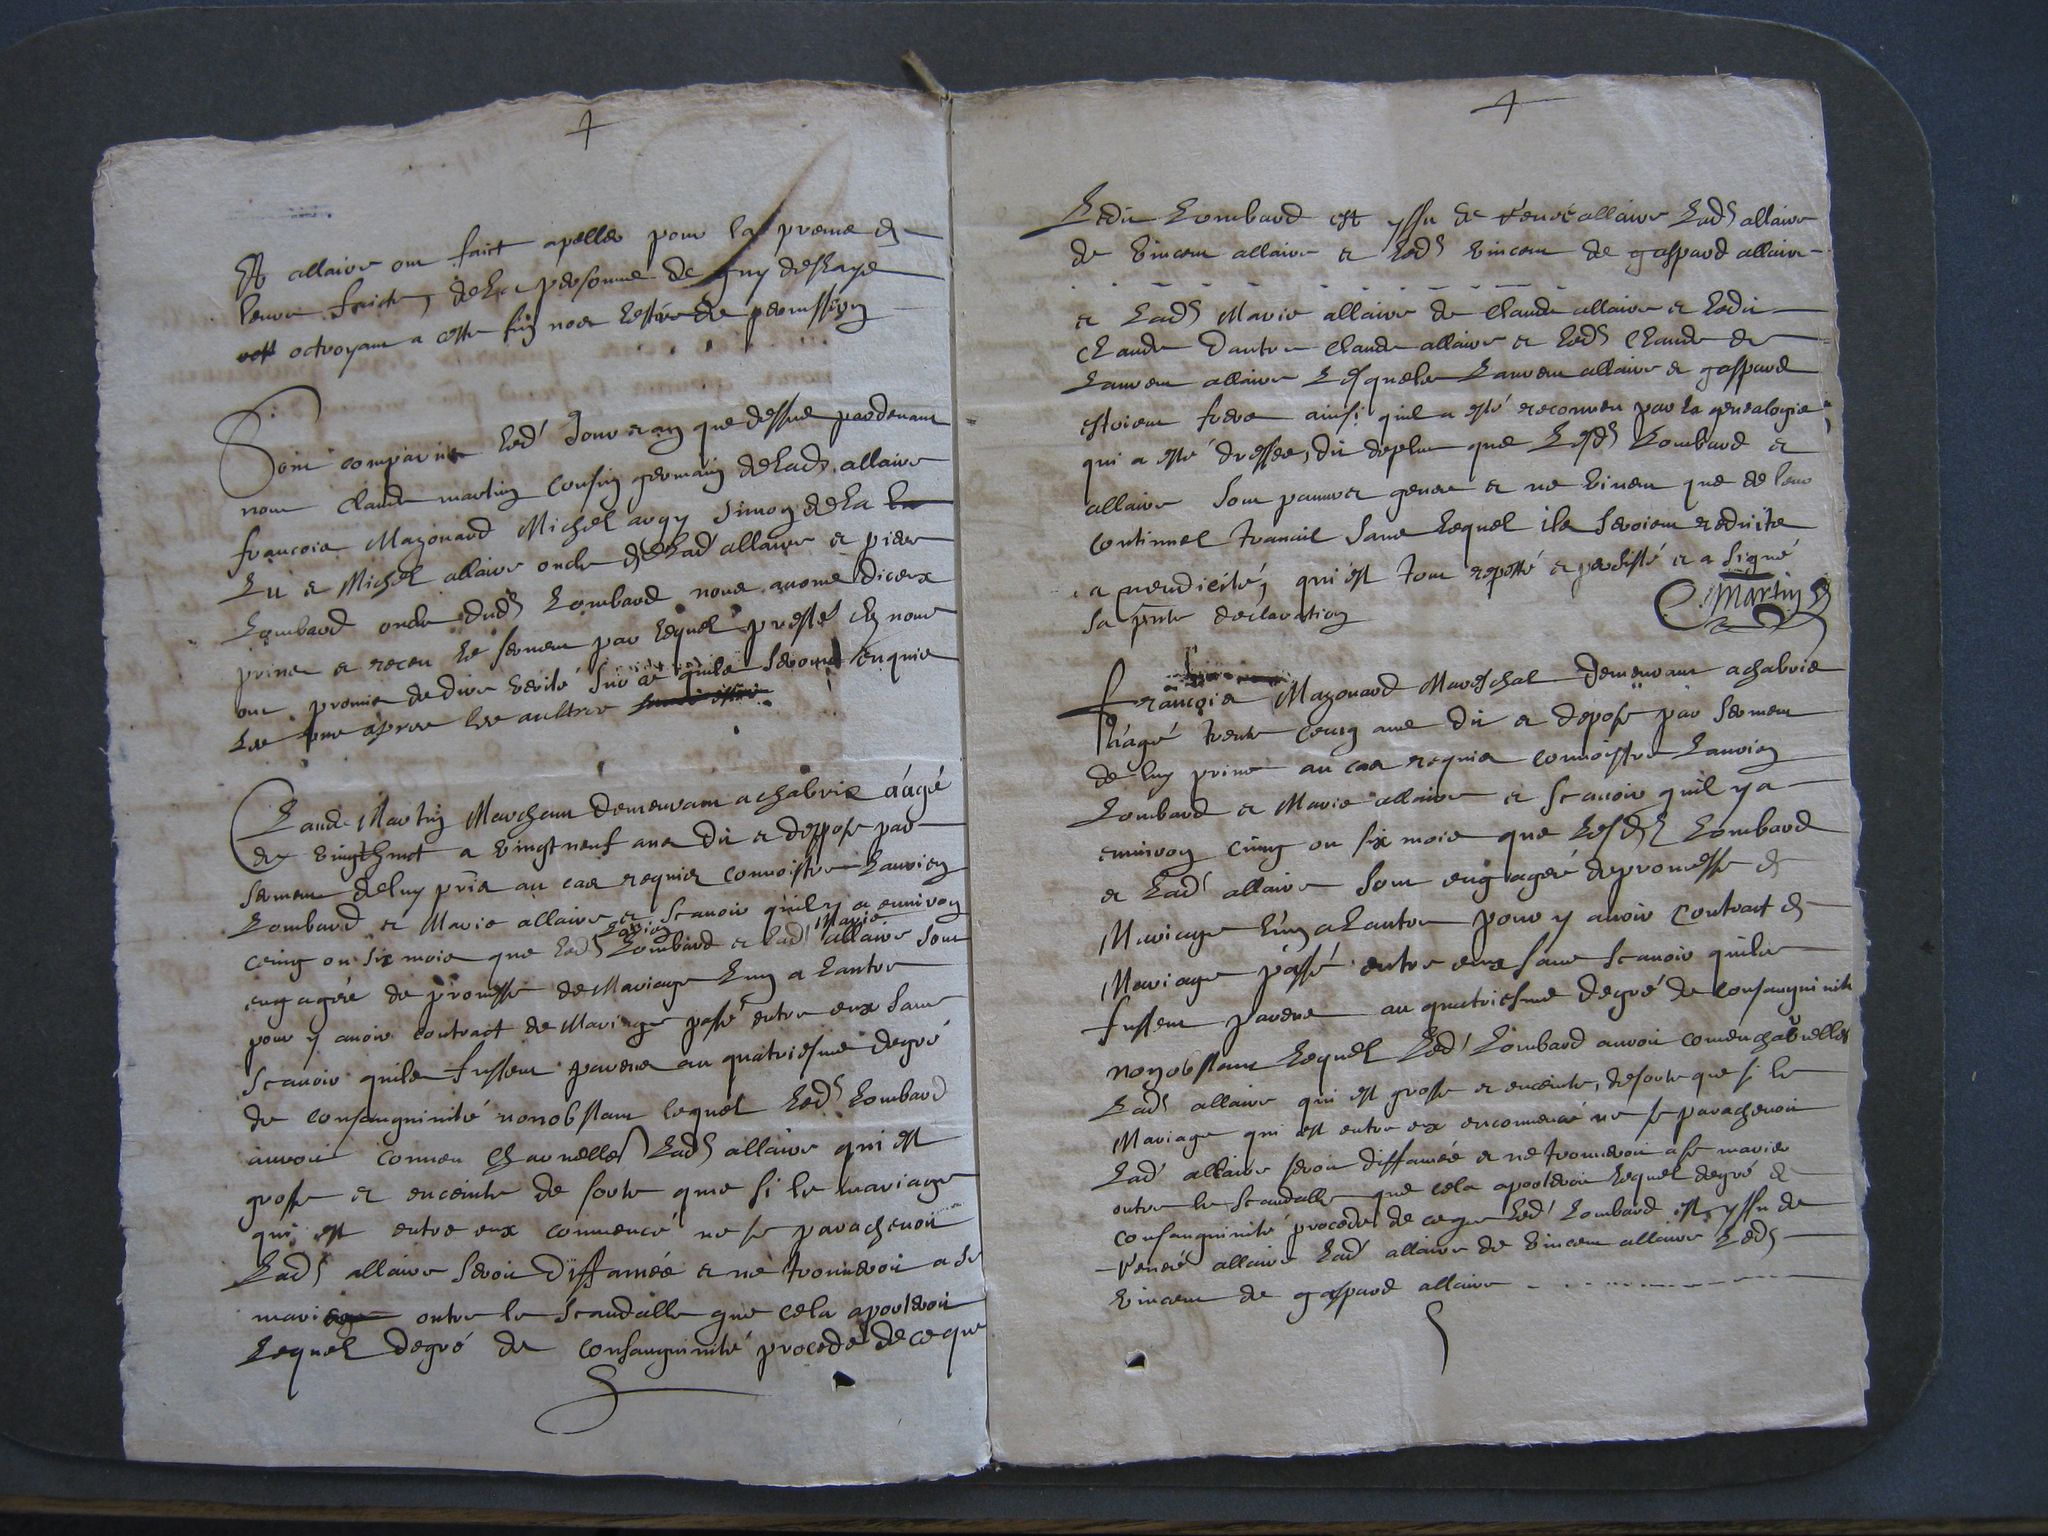 Et allaire ont faict apeller pour la preuve de
leurs faicts, de la personne de guy deshaye
octroyant a cette fin nos lettres de permission
Sont comparus led jour et an que dessus pardevant
nous Claude martin cousin germain de lad allaire
francois Mazouard Michel argy Simon de la
et Michel allaire oncle de lad allaire et pierre
Lombard oncle dud Lombard nous avons diceux
prins et receu le serment par lequel presté en nous
ont promis de dire verité sur ce quils seront enquis
les uns apres les aultres
Claude Martin Marchant demeurant a chabris aagé
de vingthuict a vingt neuf ans dit et deppose par
serment de luy pris au cas requis connoistre Laurien
Lombard et Marie allaire et scavoir quil y a environ
Laurien Marie
cinq ou six mois que led Lombard et lad allaire sont
engagés de promesse de Mariage lun a lautre
pour y avoir contract de Mariage passé entre eux sans
scavoir quils fussent parens au quatriesme degré
de consanguinité nonobstant lequel led Lombard
auroit connu charnellemt lad allaire qui est
grosse et enceinte de sorte que si le mariage
qui est entre eux commencé ne se parachevoit
Lad allaire seroit diffamée et ne trouveroit a se
marier outre le scandalle que cela aporteroit
Lequel degré de consanguinité procede de ce que
Ledit Lombard est yssu de renée allaire Lad allaire
de Vincent allaire et led Vincent de gaspard allaire
et Lad Marie allaire de Claude allaire et Ledit
Claude dautre Claude allaire et led Claude de
Laurent allaire Lesquels Laurent allaire et gaspard
estoient freres ainsi quil a esté reconnu par la genealogie
qui a esté dressée, dit deplus que Lesd Lombard et
allaire sont pauvres gens et ne vivent que de leur
continuel travail sans lequel ils seroient reduits
a mendicité, qui est tout repetté et persisté et a signé
sa pnte declaration
C. Martin
francois Mazouard Mareschal demeurant a chabris
aagé trente cinq ans dit et depose par serment
de luy prins au cas requis connoistre Laurien
Lombard et Marie allaire et scavoir quil y a
environ cinq ou six mois que lesd Lombard
et Lad allaire sont engagés de promesse de
Mariage lun a lautre pour y avoir contract de
Mariage passé entre eux sans scavoir quils
fussent parens au quatriesme degré de consanguinité
nonobstant lequel Led Lombard auroit
Lad allaire qui est grosse et enceinte, de sorte que si le
Mariage qui est entre eux encommencé ne se paracheroit
Lad allaire seroit diffamée et ne trouveroit a se marier
outre le scandalle que cela aporteroit lequel degré de
consanguinité procede de ce que Led Lombard est yssu de
renée allaire Lad allaire de Vincent allaire Led
Vincent de gaspard allaire